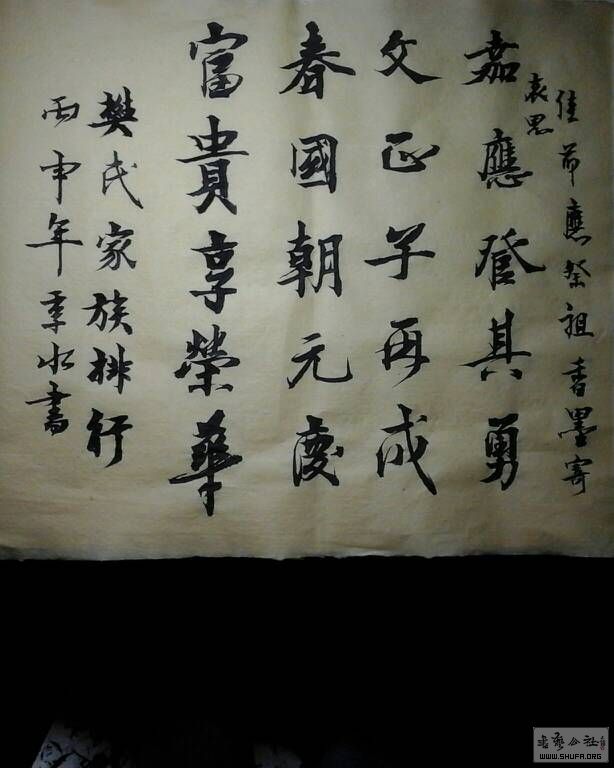 佳节應祭祖香墨寄
哀思
嘉應登其勇
文正子再成
春國朝元慶
富貴享榮華
樊氏家族排行
丙申年季水書
書藝公社
WWW.SHUFA.ORG